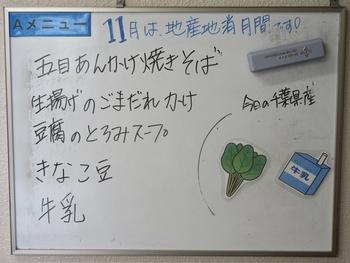 Aメニュー
11月は、地産地消月間です!
五目あんかけ焼きそば
生揚げのごまだれかけ
豆腐のとろみスープ
きなこ豆
牛乳
今日の千葉県産
牛乳